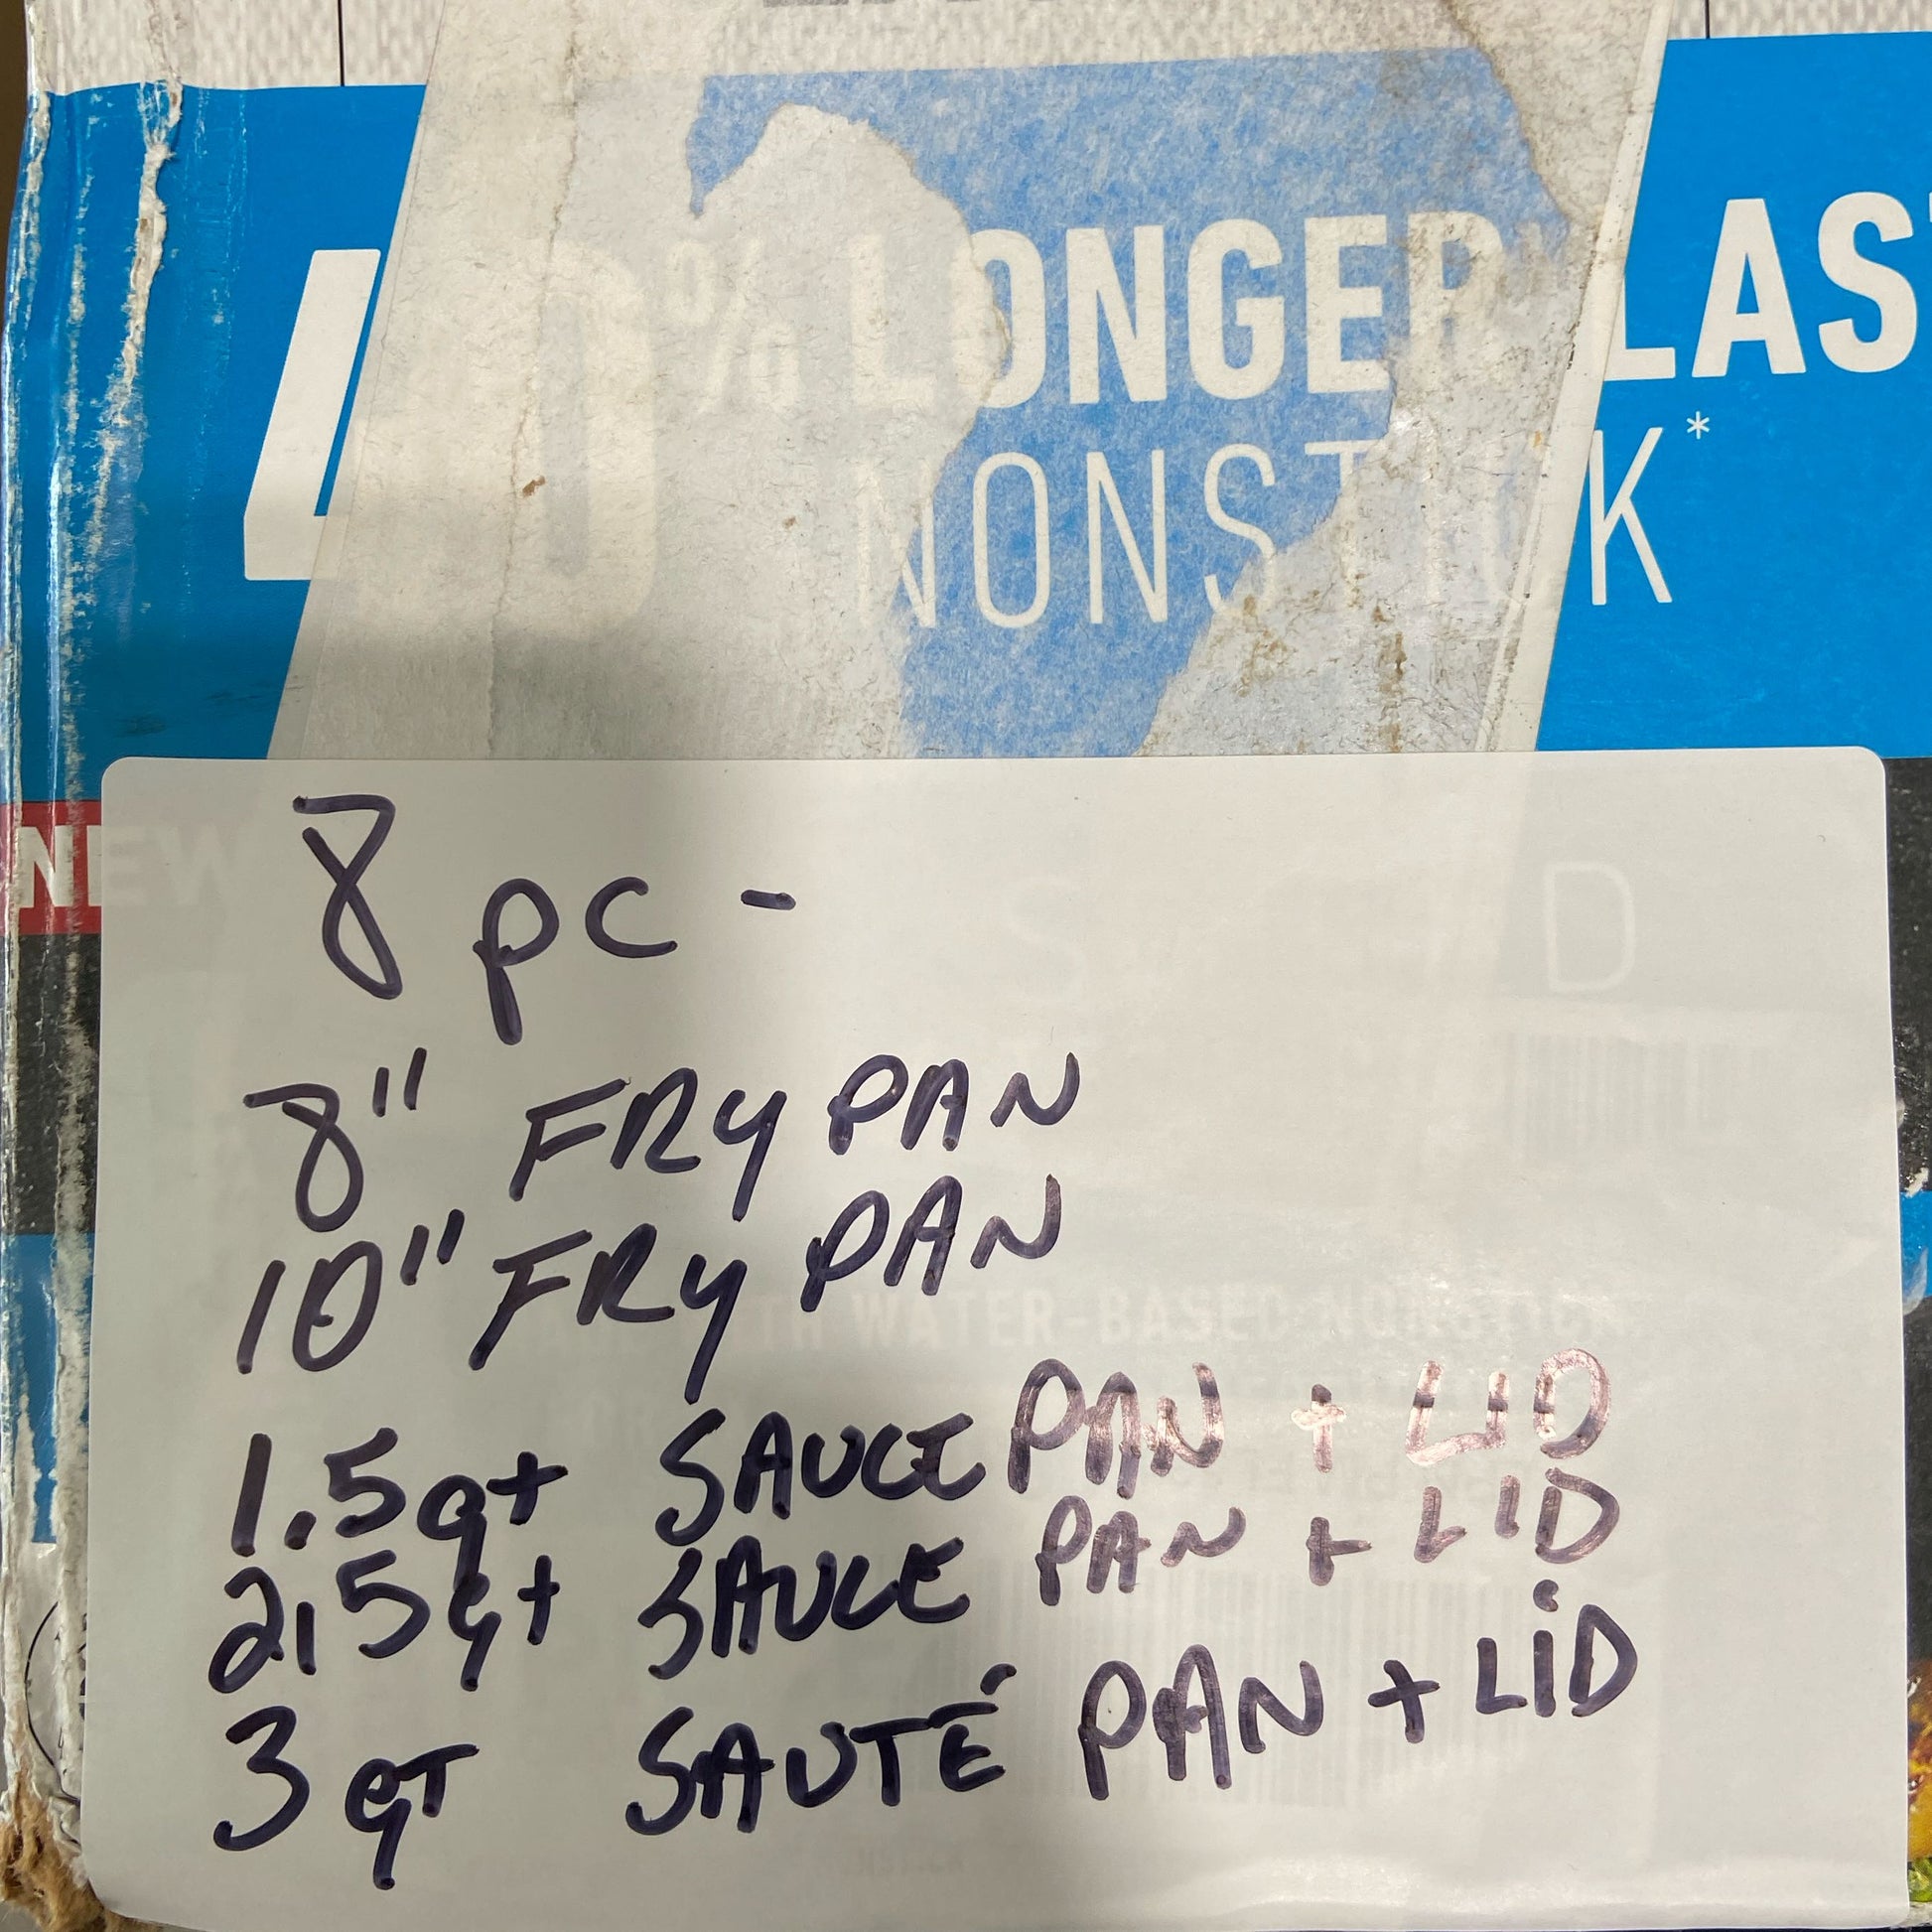 40% LONGER LAS
NONSTICK*
NEW
8 pc -
S D
8" FRY PAN
10" FRY PAN
WATER-BASED NONSTICK
1.5qt SAUCE PAN + LID
2.5qt SAUCE PAN + LID
3 qT SAUTÉ PAN + LiD